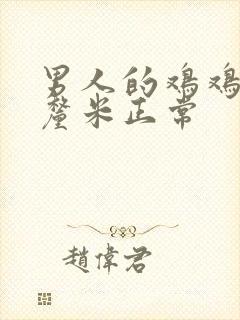 男人的鸡鸡
釐米正常
趙偉君